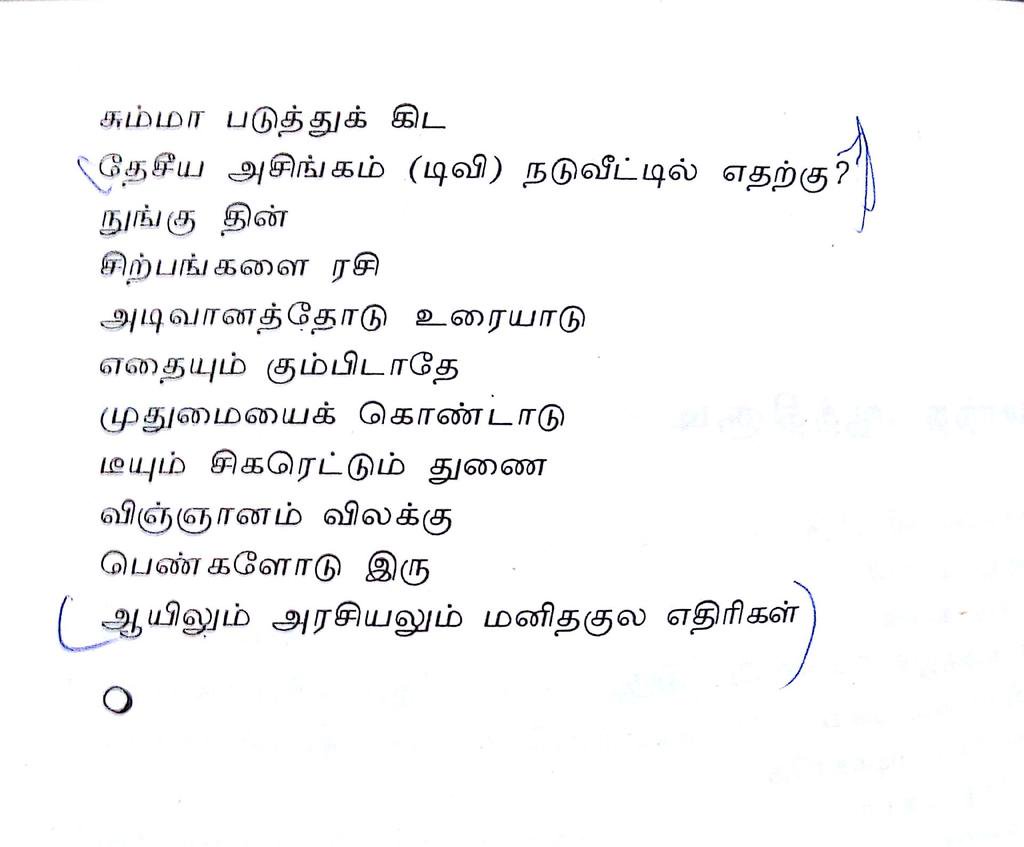 சும்மா படுத்துக் கிட
தேசீய அசிங்கம் (டிவி) நடுவீட்டில் எதற்கு?
நுங்கு தின்
சிற்பங்களை ரசி
அடிவானத்தோடு உரையாடு
எதையும் கும்பிடாதே
முதுமையைக் கொண்டாடு
டீயும் சிகரெட்டும் துணை
விஞ்ஞானம் விலக்கு
பெண்களோடு இரு
ஆயிலும் அரசியலும் மனிதகுல எதிரிகள்